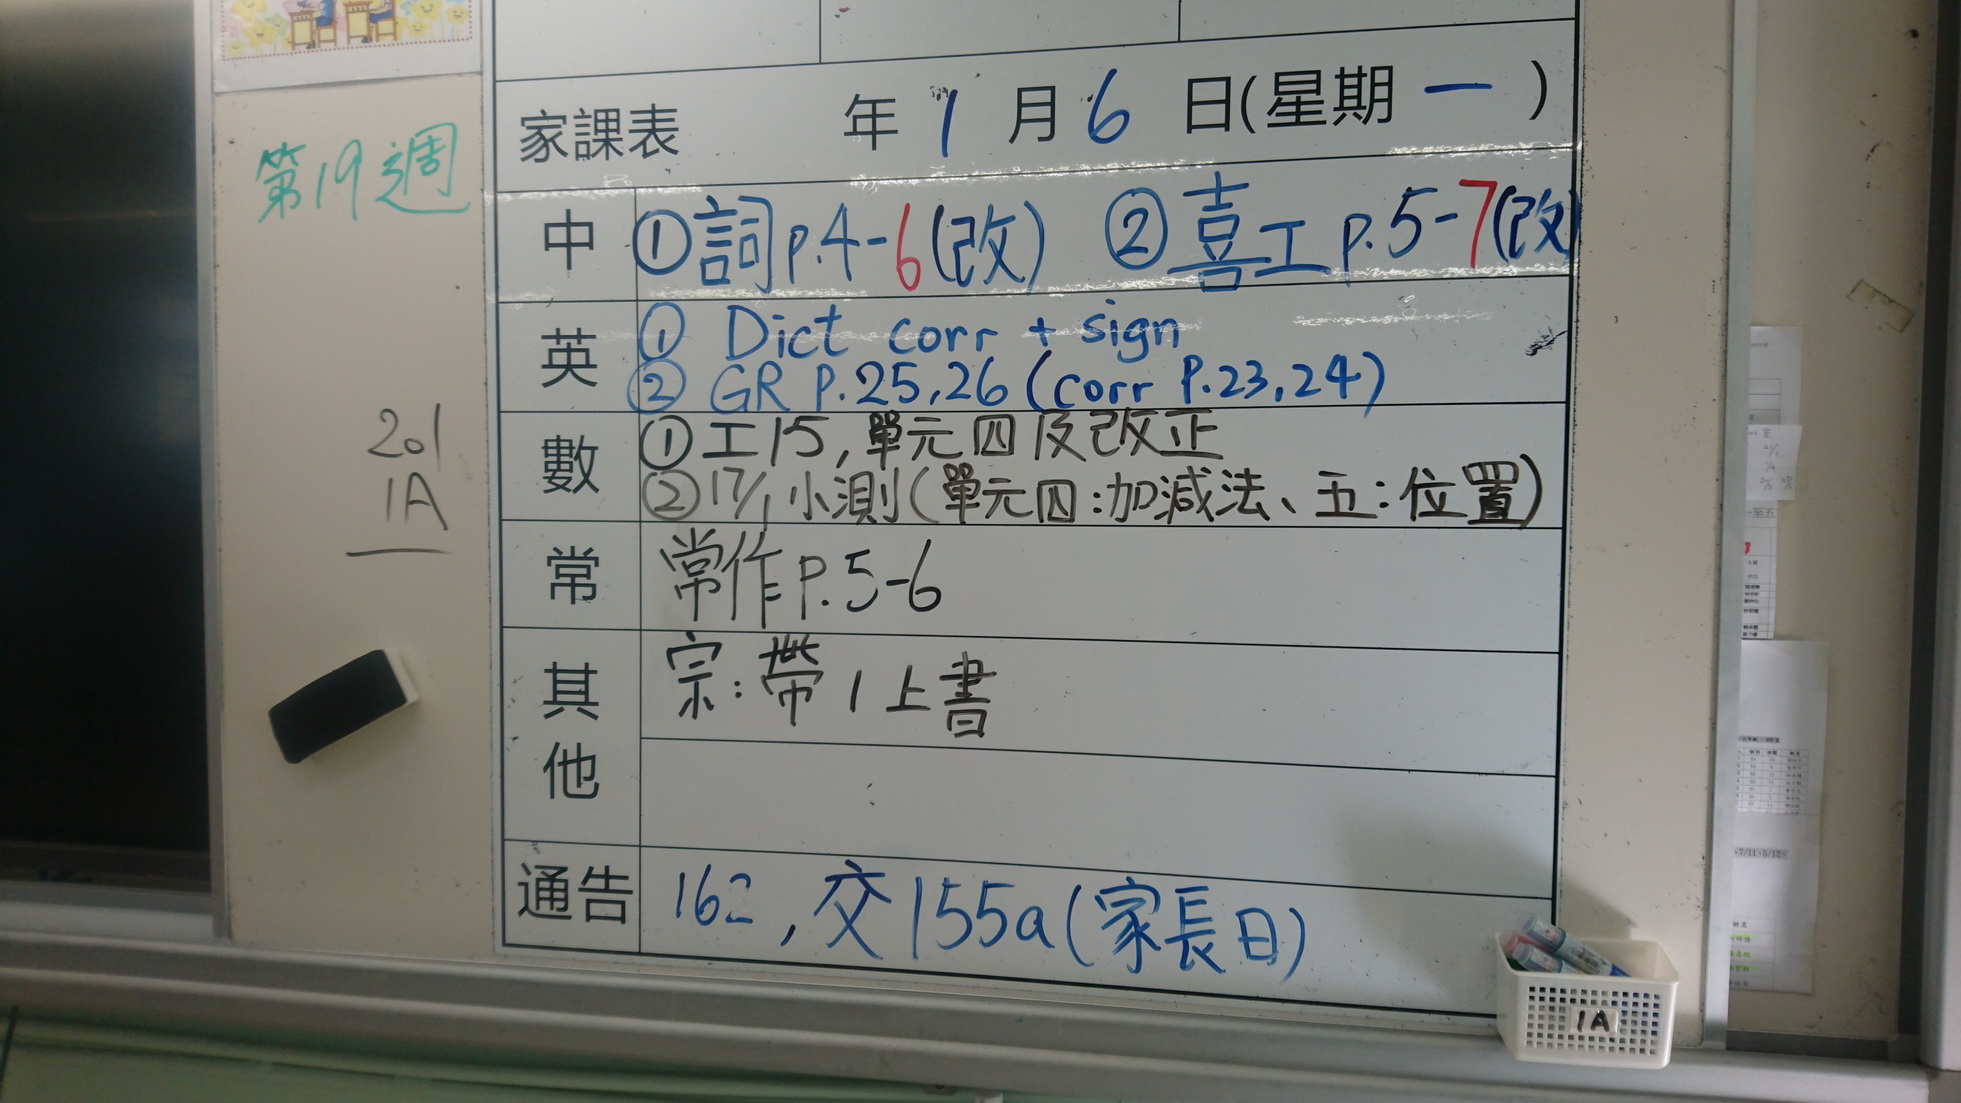 第19週
201
1A
家課表 年 1 月 6 日(星期 一 )
中 ①詞p.4-6(改) ②喜工p.5-7(改
英 ① Dict corr + sign
② GR P.25,26 (corr P.23,24)
數 ①工15,單元四及改正
②17/1小測(單元四:加減法、五:位置)
常 常作P.5-6
其他 宗:帶1上書
通告 162,交155a(家長日)
1A